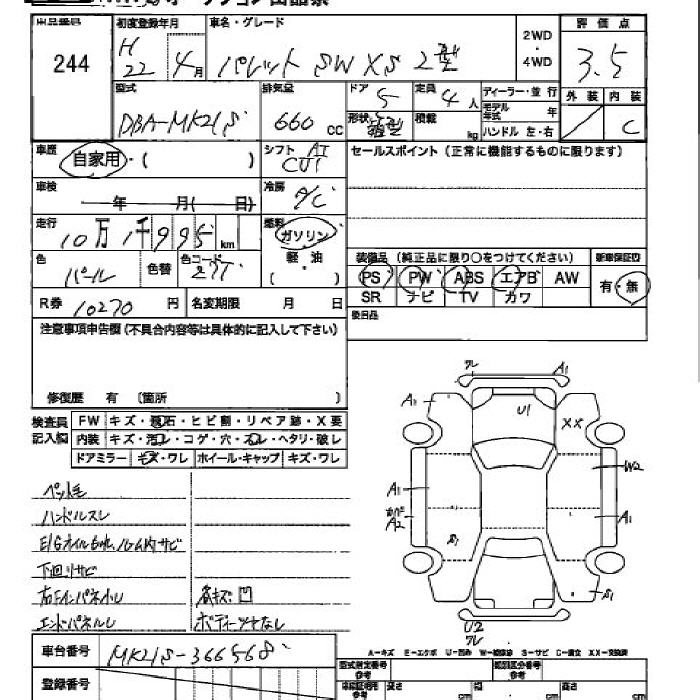 車名・グレード
初度登録年月
評価点
244
H 22 年 4月
パレット SW XS 2型
2WD ・ 4WD
3.5
型式
排気量
ドア 5
定員 4 人
ディーラー・並 行
外 装
内 装
DBA-MK21S
660 CC
形状 箱型
積載 kg
モデル年式 年
ハンドル 左・右
C
車歴
自家用・( )
シフト AT CUI
セールスポイント (正常に機能するものに限ります)
車検
年 月( 日)
冷房 A/C
走行
10万1千995 km
燃料
ガソリン
軽 油
( )
装備品 (純正品に限り○をつけてください)
新車保証書
色
パール
色替
色コード Z7T
PS PW ABS エアB AW
有・無
SR ナビ TV カワ
R券 10270 円
名変期限 月 日
後日品
注意事項申告欄 (不具合内容等は具体的に記入して下さい)
修復歴 有 〔箇所 〕
検査員記入欄
FW キズ・飛石・ヒビ割・リペア跡・X要
内装 キズ・汚レ・コゲ・穴・スレ・ヘタリ・破レ
ドアミラー キズ・ワレ ホイール・キャップ キズ・ワレ
ワレ
A1
A1
U1
XX
W2
A1
A2
A1
S1
S1
U2
ワレ
ペット毛
ハンドルスレ
下回りサビ
各キズ・凹
エンドパネルシレ
A-キズ E-エクボ U-凹み W-補修跡 S-サビ C-腐食 XX-交換済
車台番号
MK21S-366568
型式指定番号
類別区分番号
登録番号
長さ cm
幅 cm
高さ cm